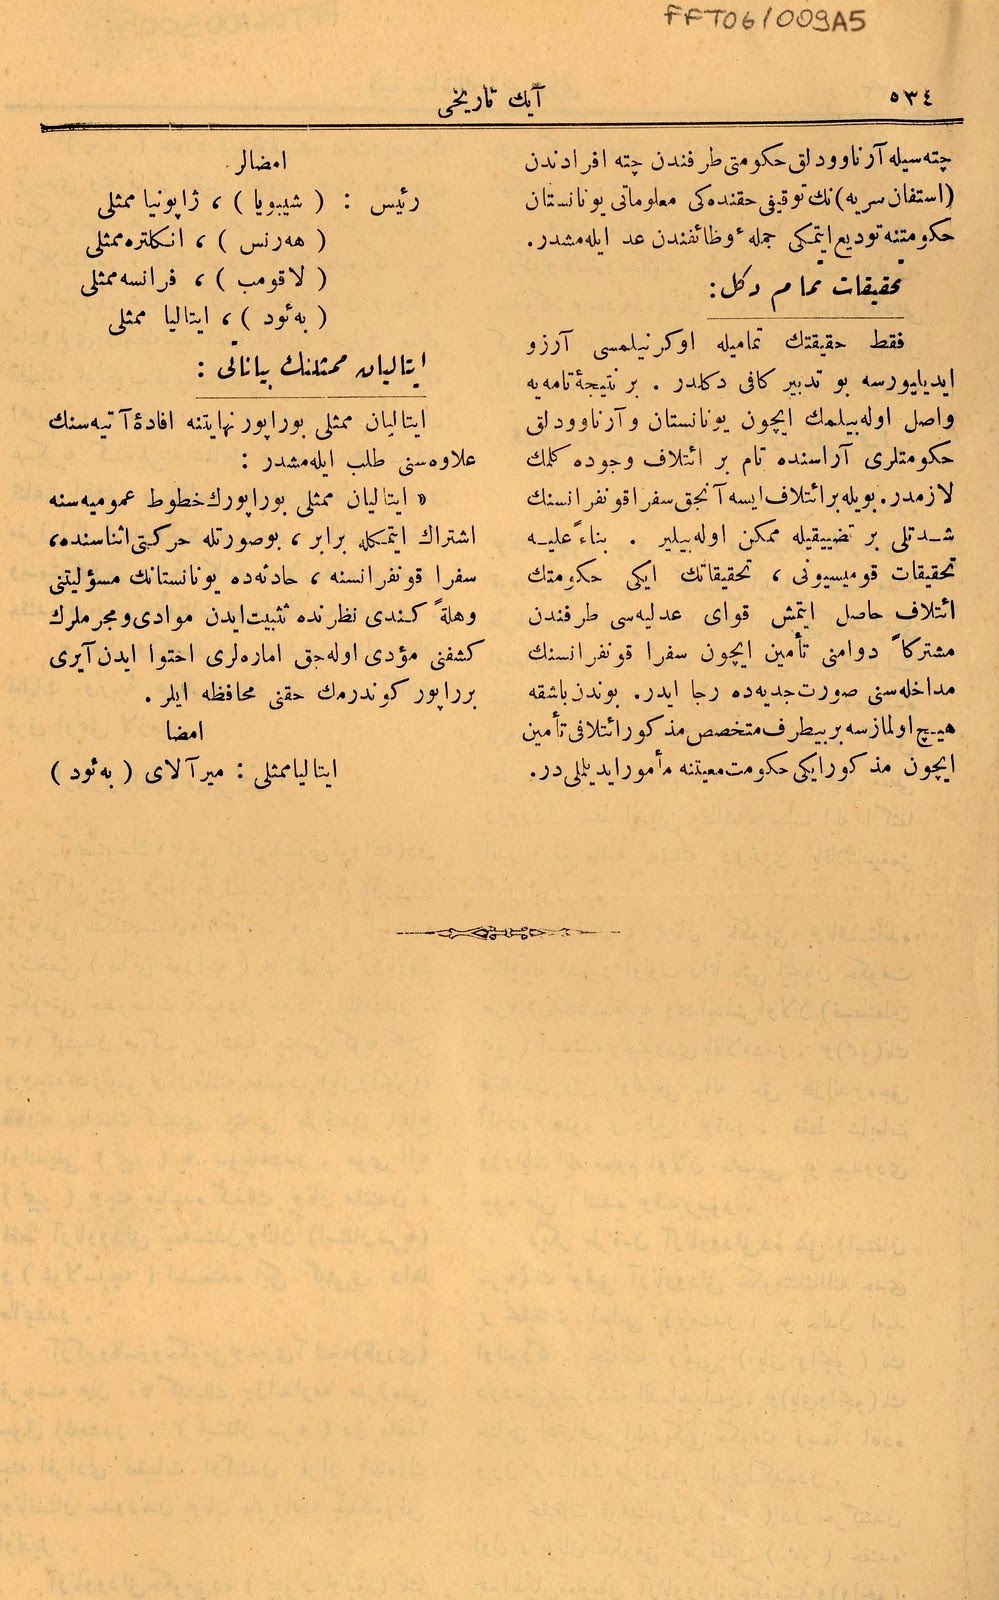 FFT06/009A5
٥٣٤
آیك تاریخی
چته‌سیله آرناوودلق حكومتی طرفندن چته افرادندن
(استفان سریه) نك توقیفی حقنده‌كی معلوماتی یونانستان
حكومتنه تودیع ایتمكی جملهٔ وظائفندن عد ایله‌مشدر.
تحقیقات تمام دكل:
فقط حقیقتك تمامیله اوكرنیلمسی آرزو
ایدیلیورسه بو تدبیر كافی دكلدر . بر نتیجهٔ تامه‌یه
واصل اوله‌بیلمك ایچون یونانستان و آرناوودلق
حكومتلری آراسنده تام بر ائتلاف وجوده كلمك
لازمدر. بویله بر ائتلاف ایسه آنجق سفرا قونفرانسنك
شدتلی بر تضییقیله ممكن اوله‌بیلیر . بناءً علیه
تحقیقات قومیسیونی ، تحقیقاتك ایكی حكومتك
ائتلاف حاصل ایتمش قوای عدلیه‌سی طرفندن
مشتركاً دوامنی تأمین ایچون سفرا قونفرانسنك
مداخله‌سنی صورت جدیه‌ده رجا ایدر. بوندن باشقه
هیچ اولمازسه بر بیطرف متخصص مذكور ائتلافی تأمین
ایچون مذكور ایكی حكومت معیتنه مأمور ایدیلملی در.
امضالر
رئیس : ( شیبویا ) ، ژاپونیا ممثلی
( هه‌رنس ) ، انكلتره ممثلی
( لاقومب ) ، فرانسه ممثلی
( به‌ئود ) ، ایتالیا ممثلی
ایتالیان ممثلنك بیاناتی :
ایتالیان ممثلی بو راپور نهایتنه افادهٔ آتیه‌سنك
علاوه‌سنی طلب ایله‌مشدر :
« ایتالیان ممثلی بو راپورك خطوط عمومیه‌سنه
اشتراك ایتمكله برابر ، بو صورتله حركتی اثناسنده ،
سفرا قونفرانسنه ، حادثه‌ده یونانستانك مسؤلیتنی
وهلةً كندی نظرنده تثبیت ایدن موادی و مجرملرك
كشفنی مؤدی اوله‌جق اماره‌لری احتوا ایدن آیری
بر راپور كوندرمك حقنی محافظه ایلر .
امضا
ایتالیا ممثلی : میرآلای ( به‌ئود )